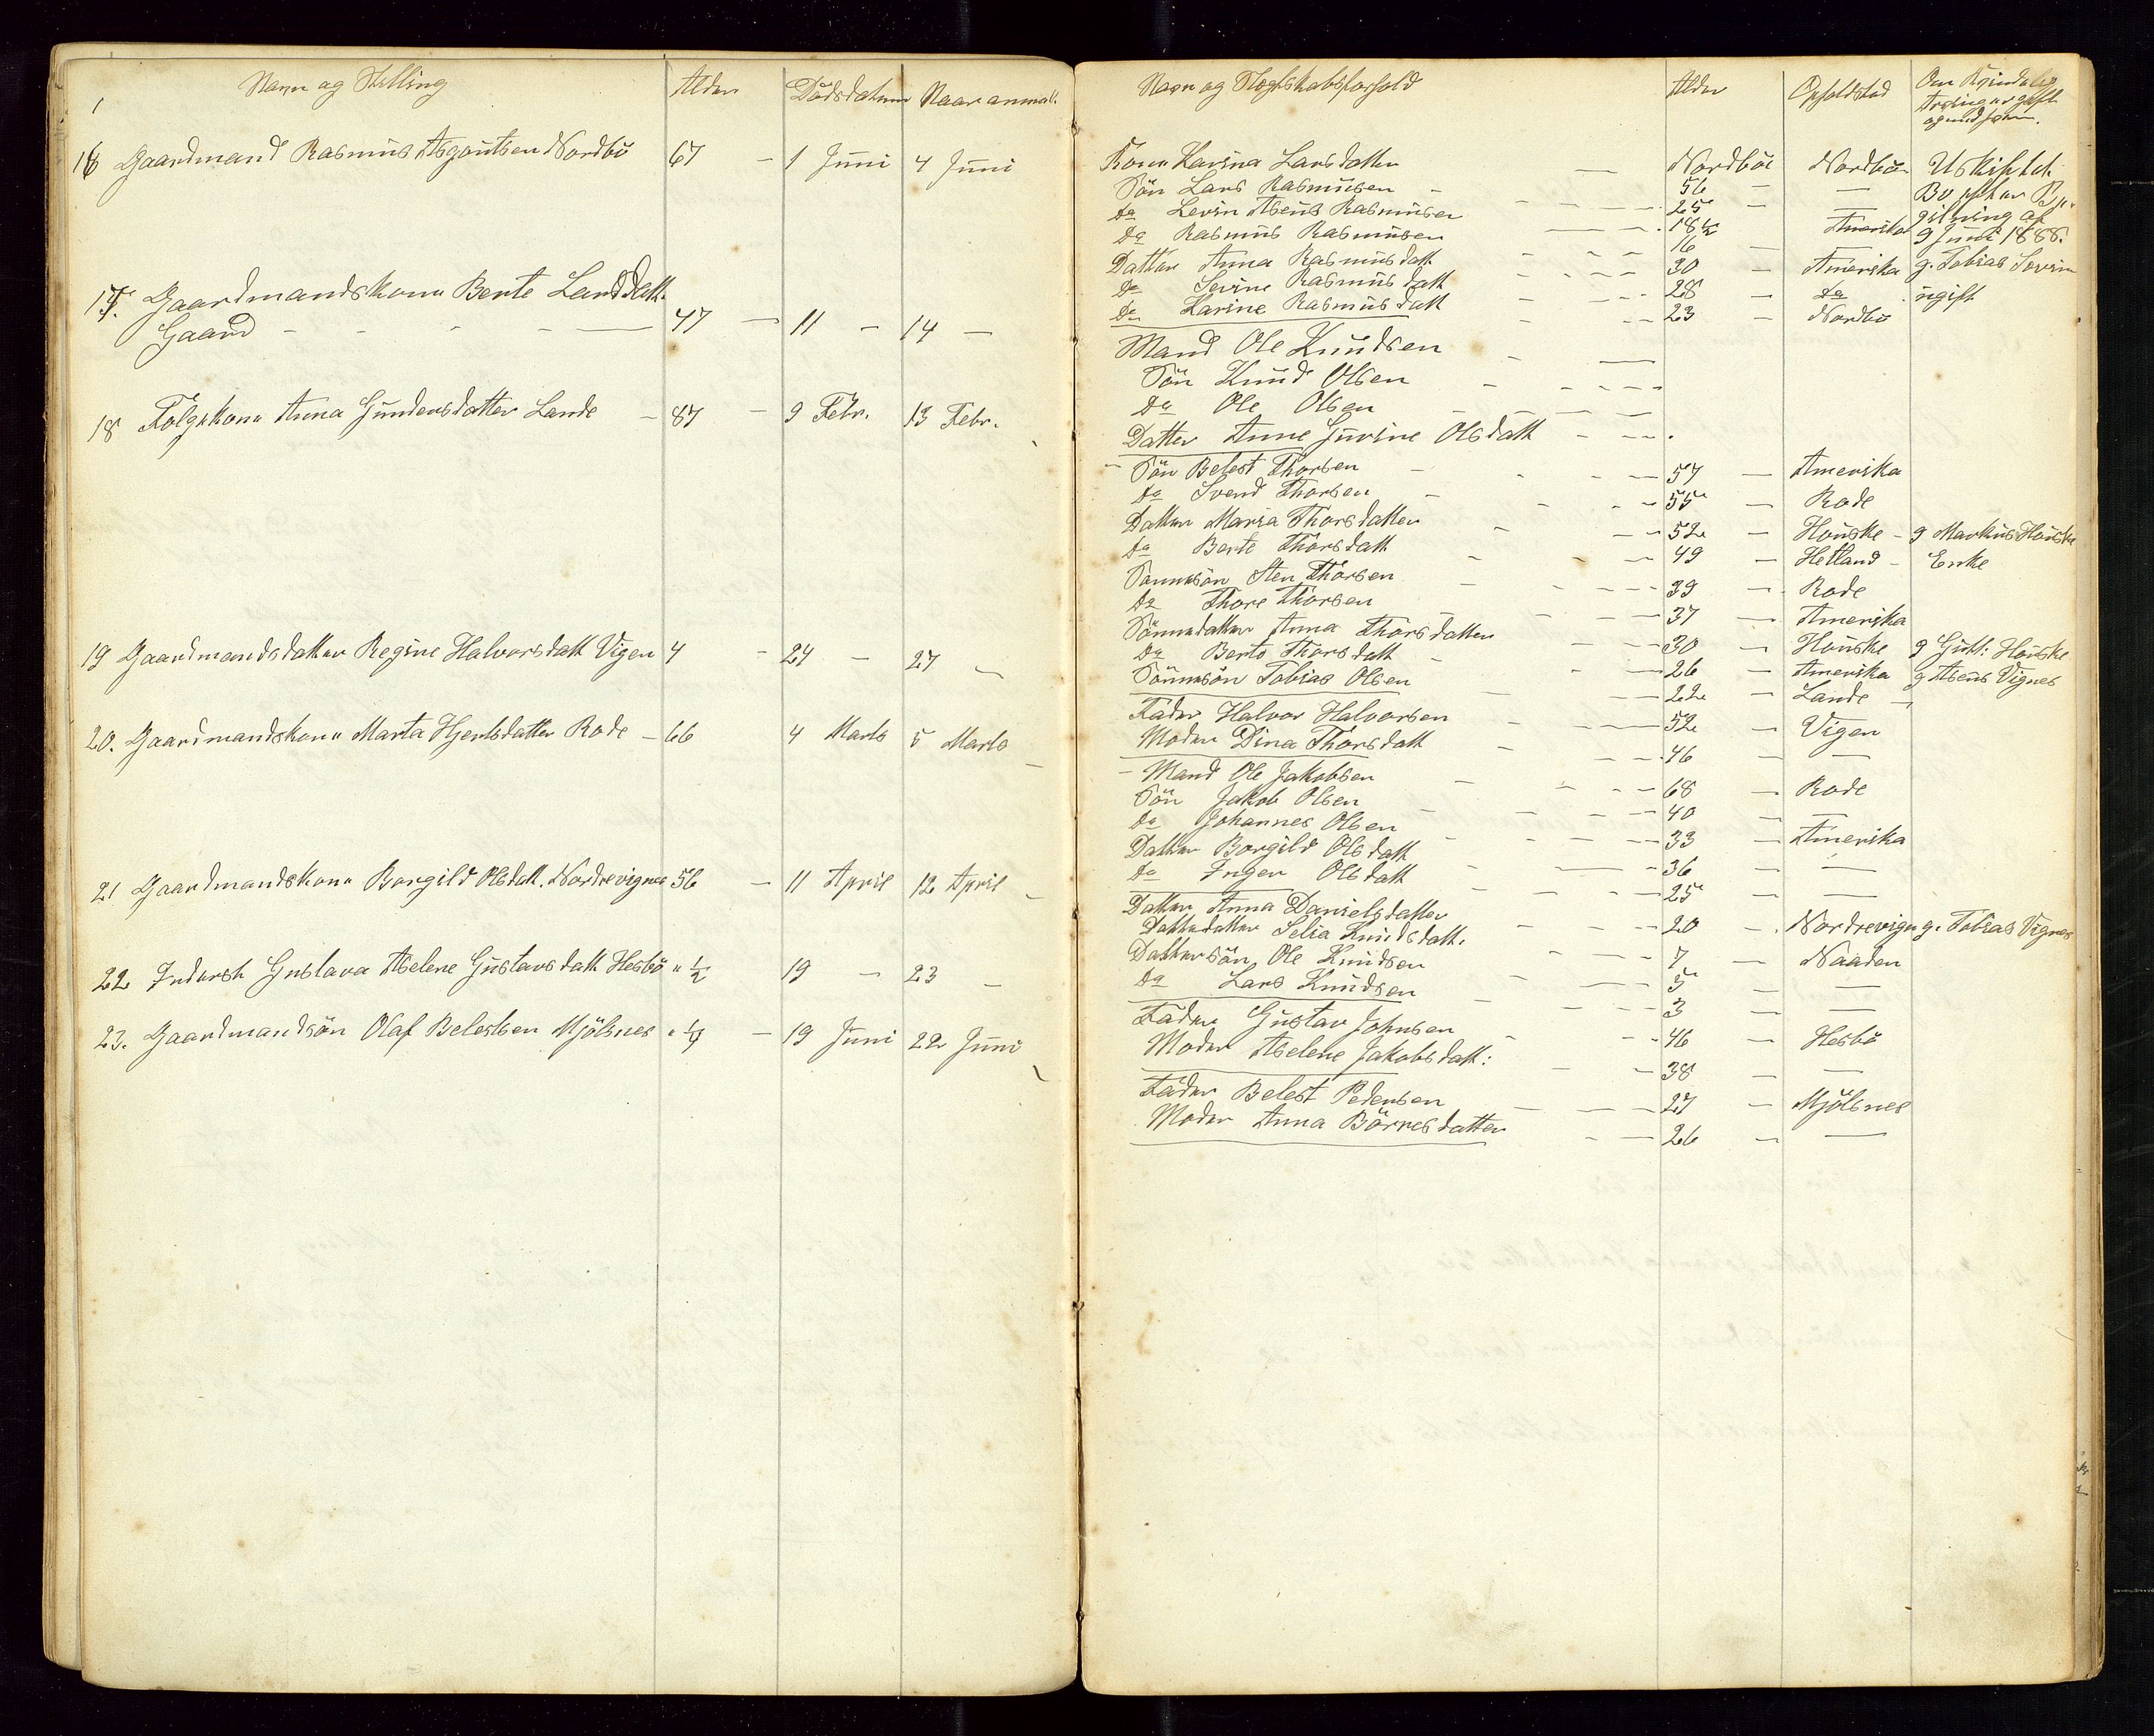 Navn og Stilling Alder Dödsdatum Naar anmel.
16 Gaardmand Rasmus Asgautsen Nordbö 67 - 1 Juni 4 Juni
17. Gaardmandskone Bente Larsdatt.
Gaard - - - - 47 - 11 - 14 -
18 Folgekone Anna Gundersdatter Lande - 87 - 9 Febr. 13 Febr.
19 Gaardmandsdatter Regine Halvorsdatt Vigen 4 - 24 - 27 -
20. Gaardmandskone Marta Hjertsdatter Rode - 66 4 Marts 5 Marts
21 Gaardmandskone Borgild Olsdatt. Nordrevignes 56 - 11 April 12 April
22 Inderst Gustava Aselene Gustavsdatt Hesbö " 1/2 19 - 23 -
23. Gaardmandsön Olaf Belestsen Mjölsnes " 1/4 - 19 Juni 22 Juni
Navn og Slegtskabsforhold Alder Opholdsted Om Kvindelig
Arving er gift
og med hvem.
Kone Karina Larsdatter - Nordböe Nordböe Uskiftet
Sön Lars Rasmusen - 56 - — Bo efter Be-
do Levin Aseus Rasmusen - - - 25 - — gilning af
do Rasmus Rasmusen — - 18 1/2 Amerika 9 Juni 1888.
Datter Anna Rasmusdatt - - - 16
do Sevine Rasmusdatt - - - 30 - Amerika g. Tobias Sevrin
do Karine Rasmusdatt - - - 28 - do ugift
23 - Nordbö
Mand Ole Knudsen - —
Sön Knud Olsen - - - -
do Ole Olsen - - — —
Datter Anne Gurine Olsdatt - - - .
Sön Belest Thorsen - - - 57 - Amerika
do Svend Thorsen - - - 55 - Rode
Datter Maria Thorsdatter - - - 52 - Houske - g Markus Houske
do Berte Thorsdatt - - - 49 - Hetland - Enke
Sönnesön Sten Thorsen - - - 39 - Rode
do Thore Thorsen - - - 37 - Amerika
Sönnedatter Anna Thorsdatter - - 30 - Houske g Gutt: Houske
do Berte Thorsdatt - - - 26 - Amerika g Aseus Vignes
Sönnesön Tobias Olsen - — 22 - Lande -
Fader Halvor Halvorsen - - — 52 - Vigen
Moder Dina Thorsdatt - - - 46 - —
Mand Ole Jakobsen - - - - 68 - Rode
Sön Jakob Olsen - - - - 40 - —
do Johannes Olsen - - - - 33 - Amerika
Datter Borgild Olsdatt - — - 36 - —
do Inger Olsdatt - - - - 25 - —
Datter Anna Danielsdatter - - - 20 - Nordrevign g. Tobias Vignes
Datterdatter Selia Knudsdatt. - - - 7 - Naaden
Dattersön Ole Knudsen - - — 5 - —
do Lars Knudsen - - - - 3 - —
Fader Gustav Johnsen - - - 46 - Hesbö
Moder Aselene Jakobsdatt: - - 38 - —
Fader Belest Pedersen — - — 27 - Mjölsnes
Moder Anna Börresdatter - — 26 - —